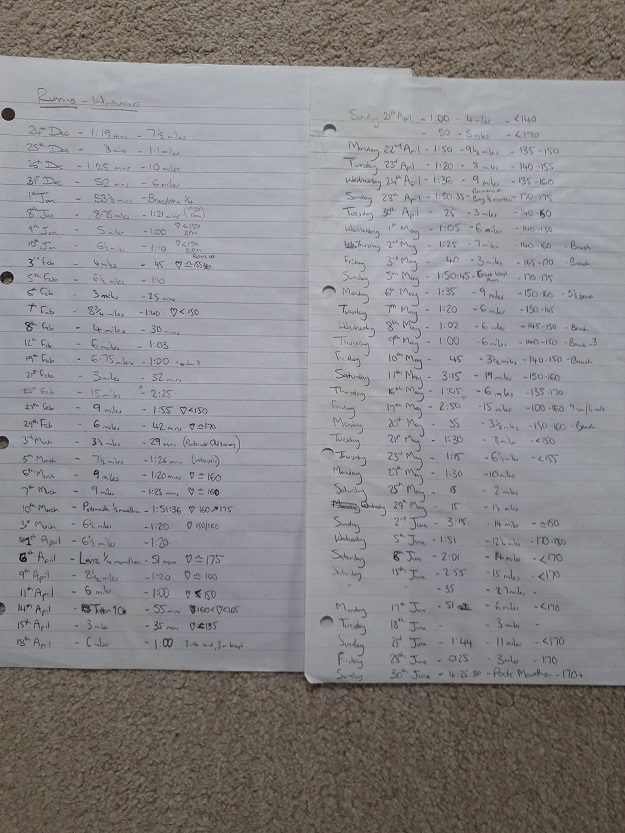 Running - Workouts
26th Dec - 1:19 mins - 7½ miles
25th Dec - 8 mins - 1.1 miles
26th Dec - 1:25 mins - 10 miles
31st Dec - 52 mins - 6 miles
1st Jan - 53½ mins - Broadstone ¼
8th Jan - 8.78 miles - 1:21 mins
9th Jan - 5 mile - 1:00 ♡<150 BPM
10th Jan - 6½ mile - 1:10 ♡<170 BPM
3rd Feb - 4 miles - 45 ♡≃155 BPM
5th Feb - 6½ miles - 1:10
6th Feb - 3 miles - 25 mins
7th Feb - 8½ miles - 1:40 ♡<150
8th Feb - 4 miles - 30 mins
12th Feb - 6 miles - 1:03
19th Feb - 6.75 miles - 1:00
21st Feb - 3 mile - 32 mins
25th Feb - 15 miles - 2:25
27th Feb - 9 miles - 1:55 ♡<150
29th Feb - 6 miles - 42 mins ♡≃170
3rd March - 3½ miles - 29 mins
5th March - 7½ miles - 1:26 mins (intervals)
6th March - 9 miles - 1:20 mins ♡≃160
7th March - 9 mile - 1:25 mins ♡≃160
10th March - ½ marathon - 1:51:36 ♡160>175
3rd March - 6½ miles - 1:20 ♡150/160
1st April - 6½ miles - 1:20
6th April - ½ marathon - 51 mins ♡≃175
9th April - 8½ miles - 1:20 ♡≃160
11th April - 6 mile - 1:00 ♡<150
14th April - Totton 10k - 55 mins ♡160<♡<165
15th April - 3 mile - 35 mins ♡<135
18th April - 6 mile - 1:00
Sunday 21st April - 1:00 - 4 miles - <140
50 - 5 miles - <170
Monday 22nd April - 1:50 - 9½ miles - 135-150
Tuesday 23rd April - 1:20 - 8 miles - 140-155
Wednesday 24th April - 1:36 - 9 miles - 135-160
Sunday 28th April - 1:50:35 - Bay ½ marathon - 170-175
Tuesday 30th April - 25 - 3 miles - 140-150
Wednesday 1st May - 1:05 - 6 miles - 140-150
Thursday 2nd May - 1:25 - 7 miles - 140-160 - Beach
Friday 3rd May - 40 - 3 miles - 165-170 - Beach
Sunday 5th May - 1:50:45 - 170-175
Monday 6th May - 1:35 - 9 miles - 150-160 - 5½ beach
Tuesday 7th May - 1:20 - 6 miles - 150-165
Wednesday 8th May - 1:02 - 6 miles - 145-150 - Beach
Thursday 9th May - 1:00 - 6 miles - 140-150 - Beach 3
Friday 10th May - 45 - 3½ miles - 140-150 - Beach
Saturday 11th May - 3:15 - 19 miles - 150-160
Thursday 16th May - 1:05 - 6 miles - 135-170
Friday 17th May - 2:50 - 15 miles - 100-160
Monday 20th May - 35 - 3½ miles - 150-160 - Beach
Tuesday 21st May - 1:30 - 8 miles - <150
Thursday 23rd May - 1:15 - 6½ miles - <155
Monday 27th May - 1:30 - 10 miles
Saturday 25th May - 15 - 2 miles
Wednesday 29th May - 15 - 1½ miles
Sunday 2nd June - 3:15 - 14 miles - ≃150
Wednesday 5th June - 1:51 - 12½ miles - 170-180
Saturday 8th June - 2:01 - 14 miles - <170
Saturday 15th June - 2:55 - 15 miles - <170
- 35 - 2.7 miles -
Monday 17th June - 51 - 6 miles - <170
Tuesday 18th June - - 3 miles -
Sunday 23rd June - 1:44 - 11 miles - <170
Friday 28th June - 0:25 - 3 miles - 170
Sunday 30th June - 4:25:30 - Poole Marathon - 170+